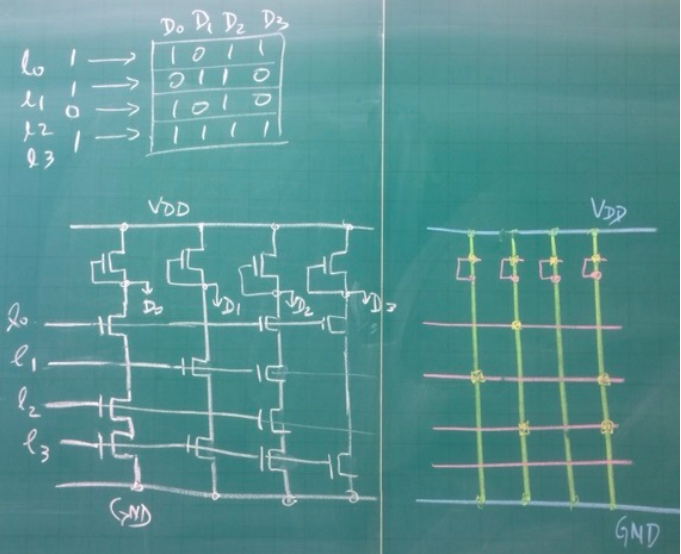 D0 D1 D2 D3
l0 1 → 1 0 1 1
l1 1 → 0 1 1 0
l2 0 → 1 0 1 0
l3 1 → 1 1 1 1
VDD
D0 D1 D2 D3
l0
l1
l2
l3
GND
VDD
GND